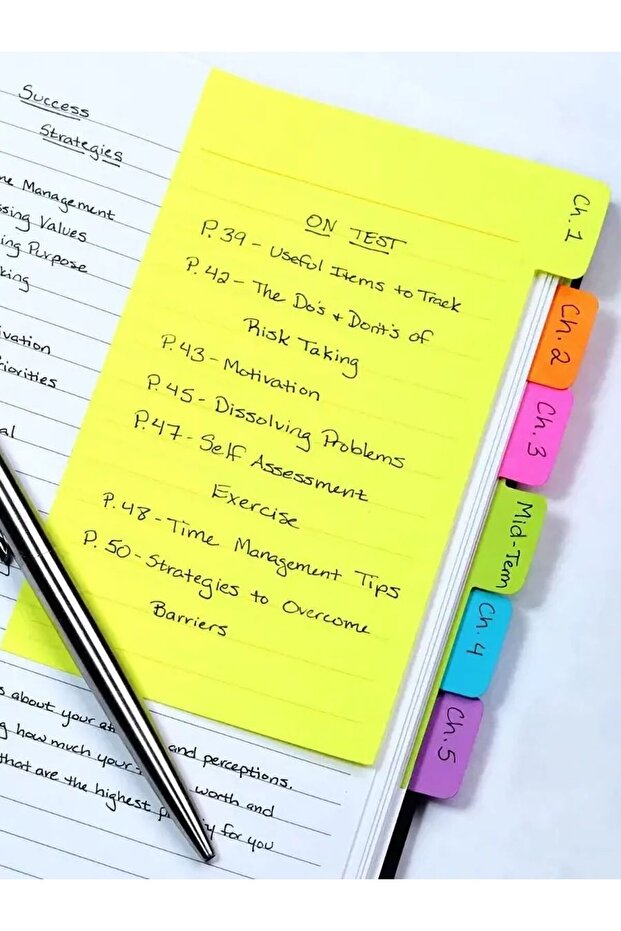 Success
Strategies
Management
Values
Purpose
ON TEST
P.39 - Useful Items to Track
P.42 - The Do's + Dont's of
Risk Taking
P.43 - Motivation
P.45 - Dissolving Problems
P.47 - Self Assessment
Exercise
P.48 - Time Management Tips
P.50 - Strategies to Overcome
Barriers
about your and perceptions.
how much your worth and
that are the highest for you
Ch. 1
Ch. 2
Ch. 3
Mid-Term
Ch. 4
Ch. 5